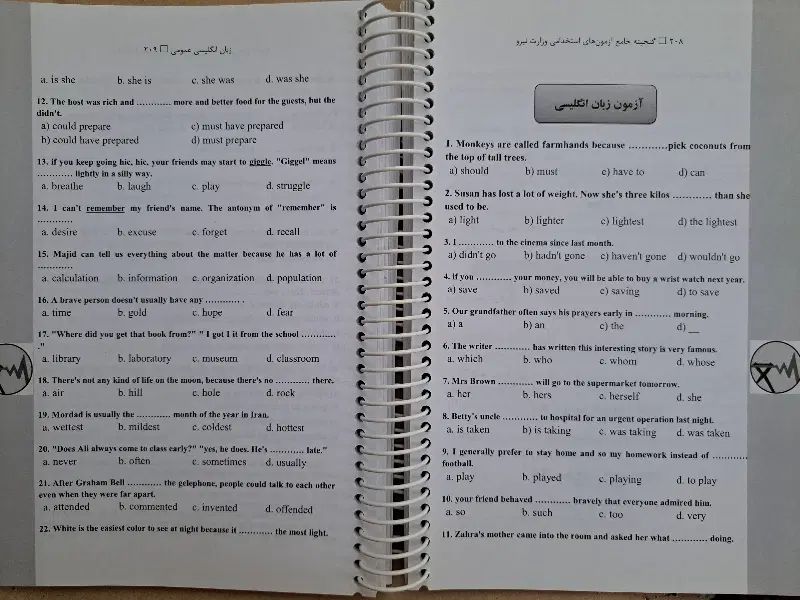 ۲۰۸ □ گنجینه جامع آزمون‌های استخدامی وزارت نیرو
آزمون زبان انگلیسی
1. Monkeys are called farmhands because ............pick coconuts from
the top of tall trees.
a) should b) must c) have to d) can
2. Susan has lost a lot of weight. Now she's three kilos ............ than she
used to be.
a) light b) lighter c) lightest d) the lightest
3. I ............ to the cinema since last month.
a) didn't go b) hadn't gone c) haven't gone d) wouldn't go
4. if you ............ your money, you will be able to buy a wrist watch next year.
a) save b) saved c) saving d) to save
5. Our grandfather often says his prayers early in ............ morning.
a) a b) an c) the d) __
6. The writer ............ has written this interesting story is very famous.
a. which b. who c. whom d. whose
7. Mrs Brown ............ will go to the supermarket tomorrow.
a. her b. hers c. herself d. she
8. Betty's uncle ............ to hospital for an urgent operation last night.
a. is taken b) is taking c. was taking d. was taken
9. I generally prefer to stay home and so my homework instead of ............
football.
a. play b. played c. playing d. to play
10. your friend behaved ............ bravely that everyone admired him.
a. so b. such c. too d. very
11. Zahra's mother came into the room and asked her what ............ doing.
زبان انگلیسی عمومی □ ۲۰۹
a. is she b. she is c. she was d. was she
12. The host was rich and ............ more and better food for the guests, but the
didn't.
a) could prepare c) must have prepared
b) could have prepared d) must prepare
13. if you keep going hic, hic, your friends may start to giggle. "Giggel" means
............ lightly in a silly way.
a. breathe b. laugh c. play d. struggle
14. I can't remember my friend's name. The antonym of "remember" is
............
a. desire b. excuse c. forget d. recall
15. Majid can tell us everything about the matter because he has a lot of
............
a. calculation b. information c. organization d. population
16. A brave person doesn't usually have any ............ .
a. time b. gold c. hope d. fear
17. "Where did you get that book from?" " I got I it from the school ............
."
a. library b. laboratory c. museum d. classroom
18. There's not any kind of life on the moon, because there's no ............ there.
a. air b. hill c. hole d. rock
19. Mordad is usually the ............ month of the year in Iran.
a. wettest b. mildest c. coldest d. hottest
20. "Does Ali always come to class early?" "yes, he does. He's ............ late."
a. never b. often c. sometimes d. usually
21. After Graham Bell ............ the gelephone, people could talk to each other
even when they were far apart.
a. attended b. commented c. invented d. offended
22. White is the easiest color to see at night because it ............ the most light.